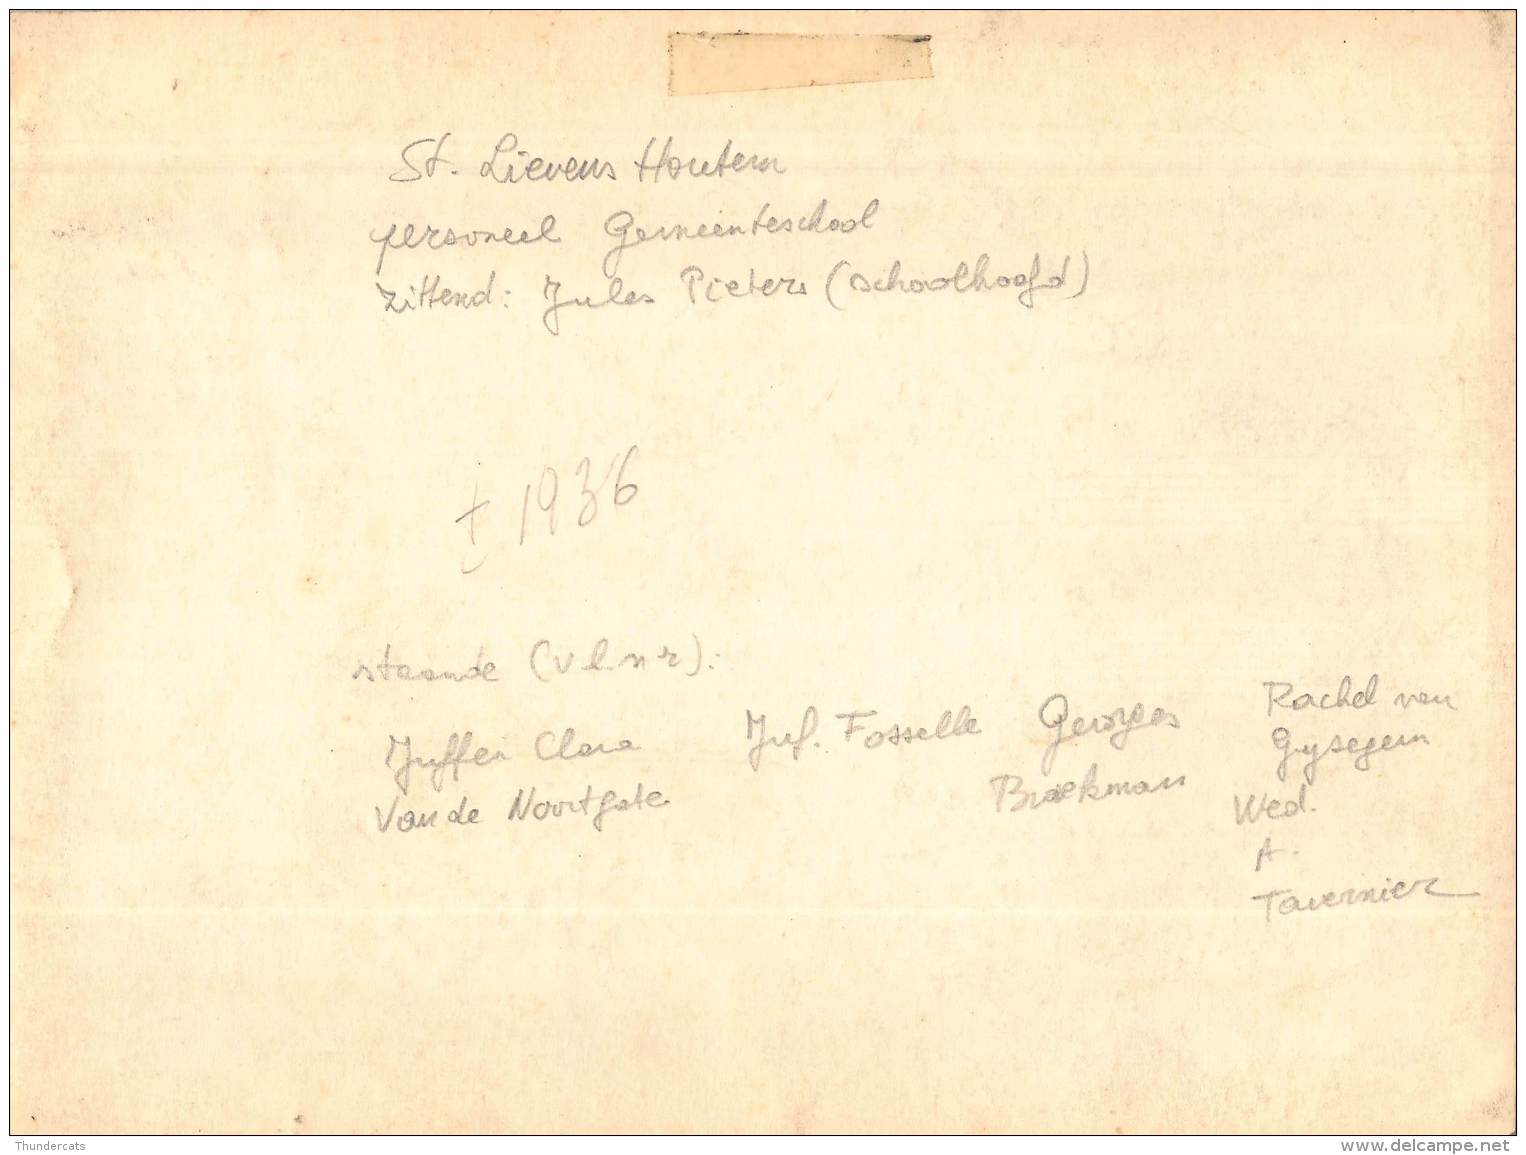 St. Lievens Houtem
personeel Gemeenteschool
zittend: Jules Pieters (schoolhoofd)
± 1936
staande (v.l.n.r):
Juffer Clara
Van de Noortgate
Juf. Fosselle
Georges
Braekman
Rachel van
Gysegem
Wed.
A.
Tavernier
Thundercats
www.delcampe.net